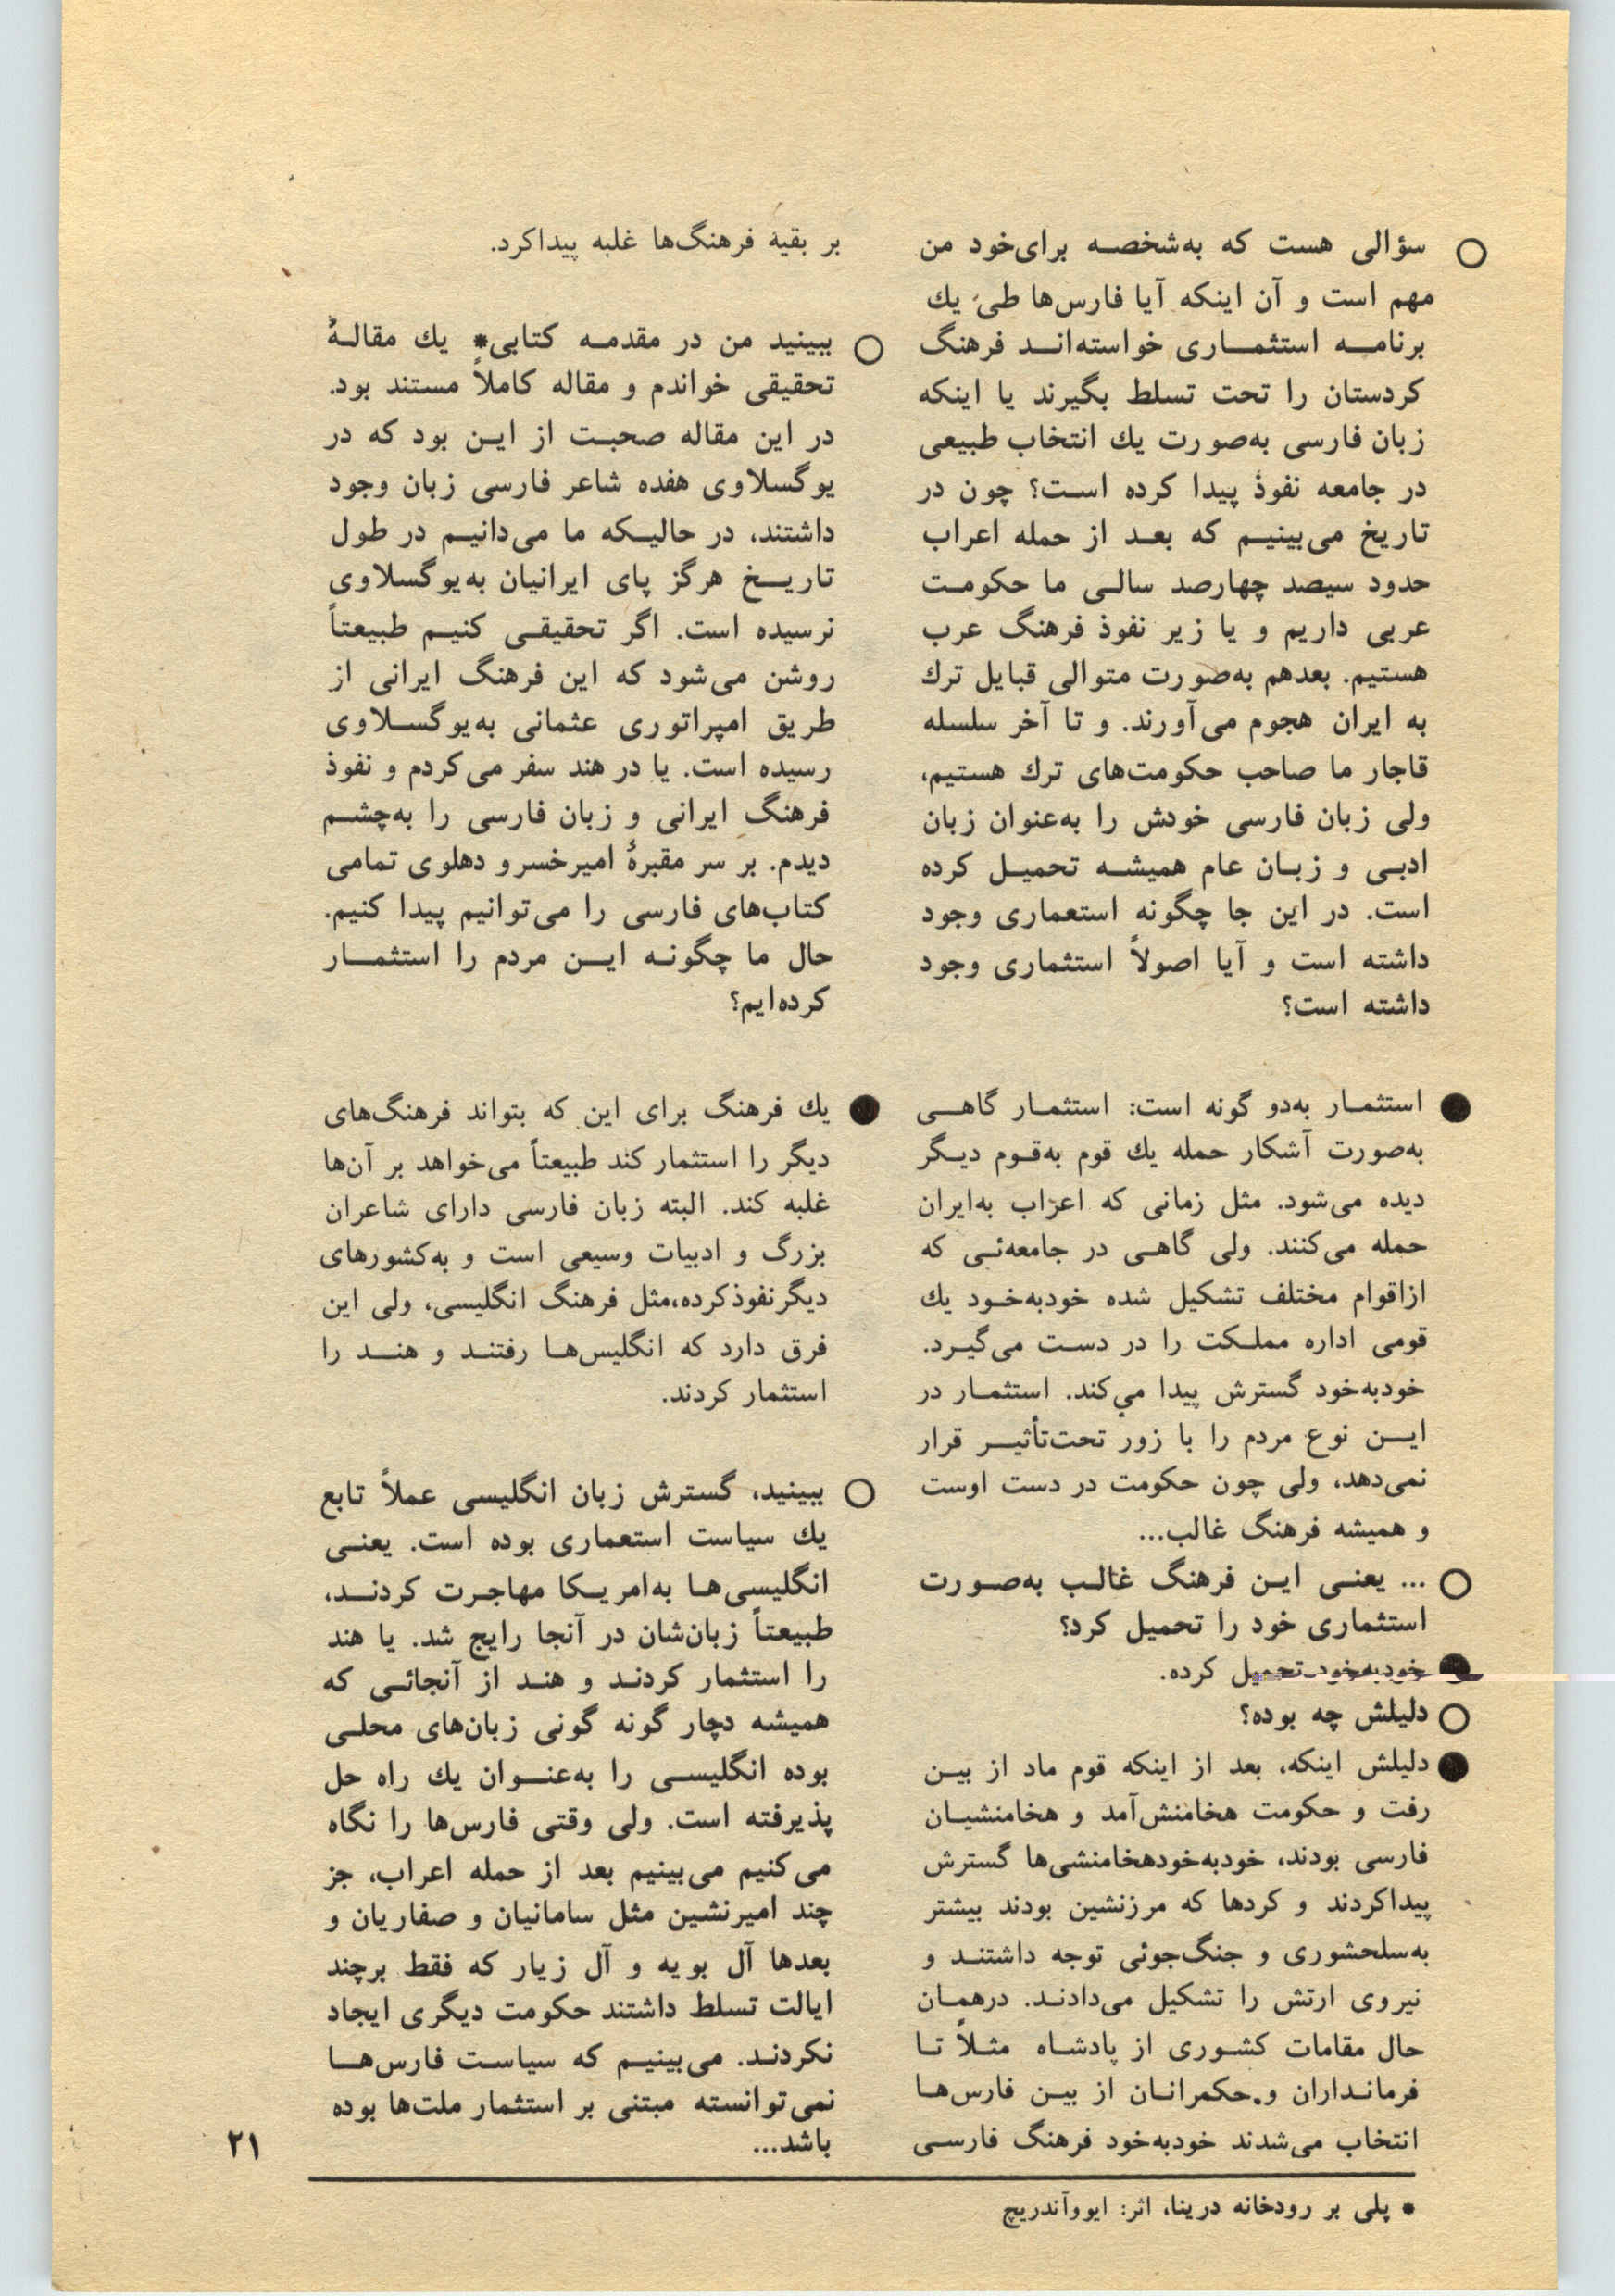 ○ سؤالی هست که به‌شخصه برای‌خود من
مهم است و آن اینکه آیا فارس‌ها طی یك
برنامه استثماری خواسته‌اند فرهنگ
کردستان را تحت تسلط بگیرند یا اینکه
زبان فارسی به‌صورت یك انتخاب طبیعی
در جامعه نفوذ پیدا کرده است؟ چون در
تاریخ می‌بینیم که بعد از حمله اعراب
حدود سیصد چهارصد سالی ما حکومت
عربی داریم و یا زیر نفوذ فرهنگ عرب
هستیم. بعدهم به‌صورت متوالی قبایل ترك
به ایران هجوم می‌آورند. و تا آخر سلسله
قاجار ما صاحب حکومت‌های ترك هستیم،
ولی زبان فارسی خودش را به‌عنوان زبان
ادبی و زبان عام همیشه تحمیل کرده
است. در این جا چگونه استعماری وجود
داشته است و آیا اصولاً استثماری وجود
داشته است؟
● استثمار به‌دو گونه است: استثمار گاهی
به‌صورت آشکار حمله یك قوم به‌قوم دیگر
دیده می‌شود. مثل زمانی که اعراب به‌ایران
حمله می‌کنند. ولی گاهی در جامعه‌ئی که
ازاقوام مختلف تشکیل شده خودبه‌خود یك
قومی اداره مملکت را در دست می‌گیرد.
خودبه‌خود گسترش پیدا می‌کند. استثمار در
این نوع مردم را با زور تحت‌تأثیر قرار
نمی‌دهد، ولی چون حکومت در دست اوست
و همیشه فرهنگ غالب...
○ ... یعنی این فرهنگ غالب به‌صورت
استثماری خود را تحمیل کرد؟
● خودبه‌خود تحمیل کرده.
○ دلیلش چه بوده؟
● دلیلش اینکه، بعد از اینکه قوم ماد از بین
رفت و حکومت هخامنش‌آمد و هخامنشیان
فارسی بودند، خودبه‌خودهخامنشی‌ها گسترش
پیداکردند و کردها که مرزنشین بودند بیشتر
به‌سلحشوری و جنگ‌جوئی توجه داشتند و
نیروی ارتش را تشکیل می‌دادند. درهمان
حال مقامات کشوری از پادشاه مثلاً تا
فرمانداران و.حکمرانان از بین فارس‌ها
انتخاب می‌شدند خودبه‌خود فرهنگ فارسی
بر بقیه فرهنگ‌ها غلبه پیداکرد.
○ ببینید من در مقدمه کتابی* یك مقالهٔ
تحقیقی خواندم و مقاله کاملاً مستند بود.
در این مقاله صحبت از این بود که در
یوگسلاوی هفده شاعر فارسی زبان وجود
داشتند، در حالیکه ما می‌دانیم در طول
تاریخ هرگز پای ایرانیان به‌یوگسلاوی
نرسیده است. اگر تحقیقی کنیم طبیعتاً
روشن می‌شود که این فرهنگ ایرانی از
طریق امپراتوری عثمانی به‌یوگسلاوی
رسیده است. یا در هند سفر می‌کردم و نفوذ
فرهنگ ایرانی و زبان فارسی را به‌چشم
دیدم. بر سر مقبرهٔ امیرخسرو دهلوی تمامی
کتاب‌های فارسی را می‌توانیم پیدا کنیم.
حال ما چگونه این مردم را استثمار
کرده‌ایم؟
● یك فرهنگ برای این که بتواند فرهنگ‌های
دیگر را استثمار کند طبیعتاً می‌خواهد بر آن‌ها
غلبه کند. البته زبان فارسی دارای شاعران
بزرگ و ادبیات وسیعی است و به‌کشورهای
دیگرنفوذکرده،مثل فرهنگ انگلیسی، ولی این
فرق دارد که انگلیس‌ها رفتند و هند را
استثمار کردند.
○ ببینید، گسترش زبان انگلیسی عملاً تابع
یك سیاست استعماری بوده است. یعنی
انگلیسی‌ها به‌امریکا مهاجرت کردند،
طبیعتاً زبان‌شان در آنجا رایج شد. یا هند
را استثمار کردند و هند از آنجائی که
همیشه دچار گونه گونی زبان‌های محلی
بوده انگلیسی را به‌عنوان یك راه حل
پذیرفته است. ولی وقتی فارس‌ها را نگاه
می‌کنیم می‌بینیم بعد از حمله اعراب، جز
چند امیرنشین مثل سامانیان و صفاریان و
بعدها آل بویه و آل زیار که فقط برچند
ایالت تسلط داشتند حکومت دیگری ایجاد
نکردند. می‌بینیم که سیاست فارس‌ها
نمی‌توانسته مبتنی بر استثمار ملت‌ها بوده
باشد...
* پلی بر رودخانه درینا، اثر: ایووآندریچ
۲۱